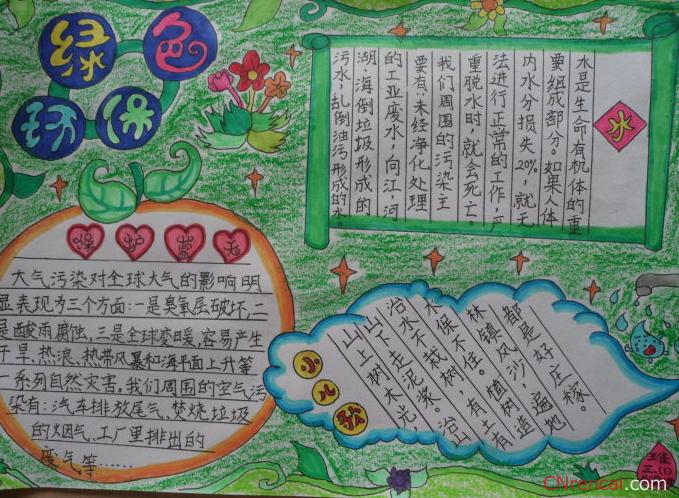 绿色
环保
水
水是生命有机体的重
要组成部分。如果人体
内水分损失20%,就无
法进行正常的工作,严
重脱水时,就会死亡。
我们周围的污染主
要有:未经净化处理
的工业废水,向江河
湖,海倒垃圾形成的
污水,乱倒油污形成的水。
保护蓝天
大气污染对全球大气的影响明
显表现为三个方面:一是臭氧层破坏,二
是酸雨腐蚀,三是全球变暖,容易产生
干旱、热浪、热带风暴和海平面上升等
一系列自然灾害。我们周围的空气污
染有:汽车排放尾气、焚烧垃圾
的烟气、工厂里排出的
废气等……
小儿歌
山上树木光,
山下走泥浆。治山
治水不栽树,有土有
水保不住。植树造
林镇风沙,遍地
都是好庄稼。
三(1)
CNrencai.com